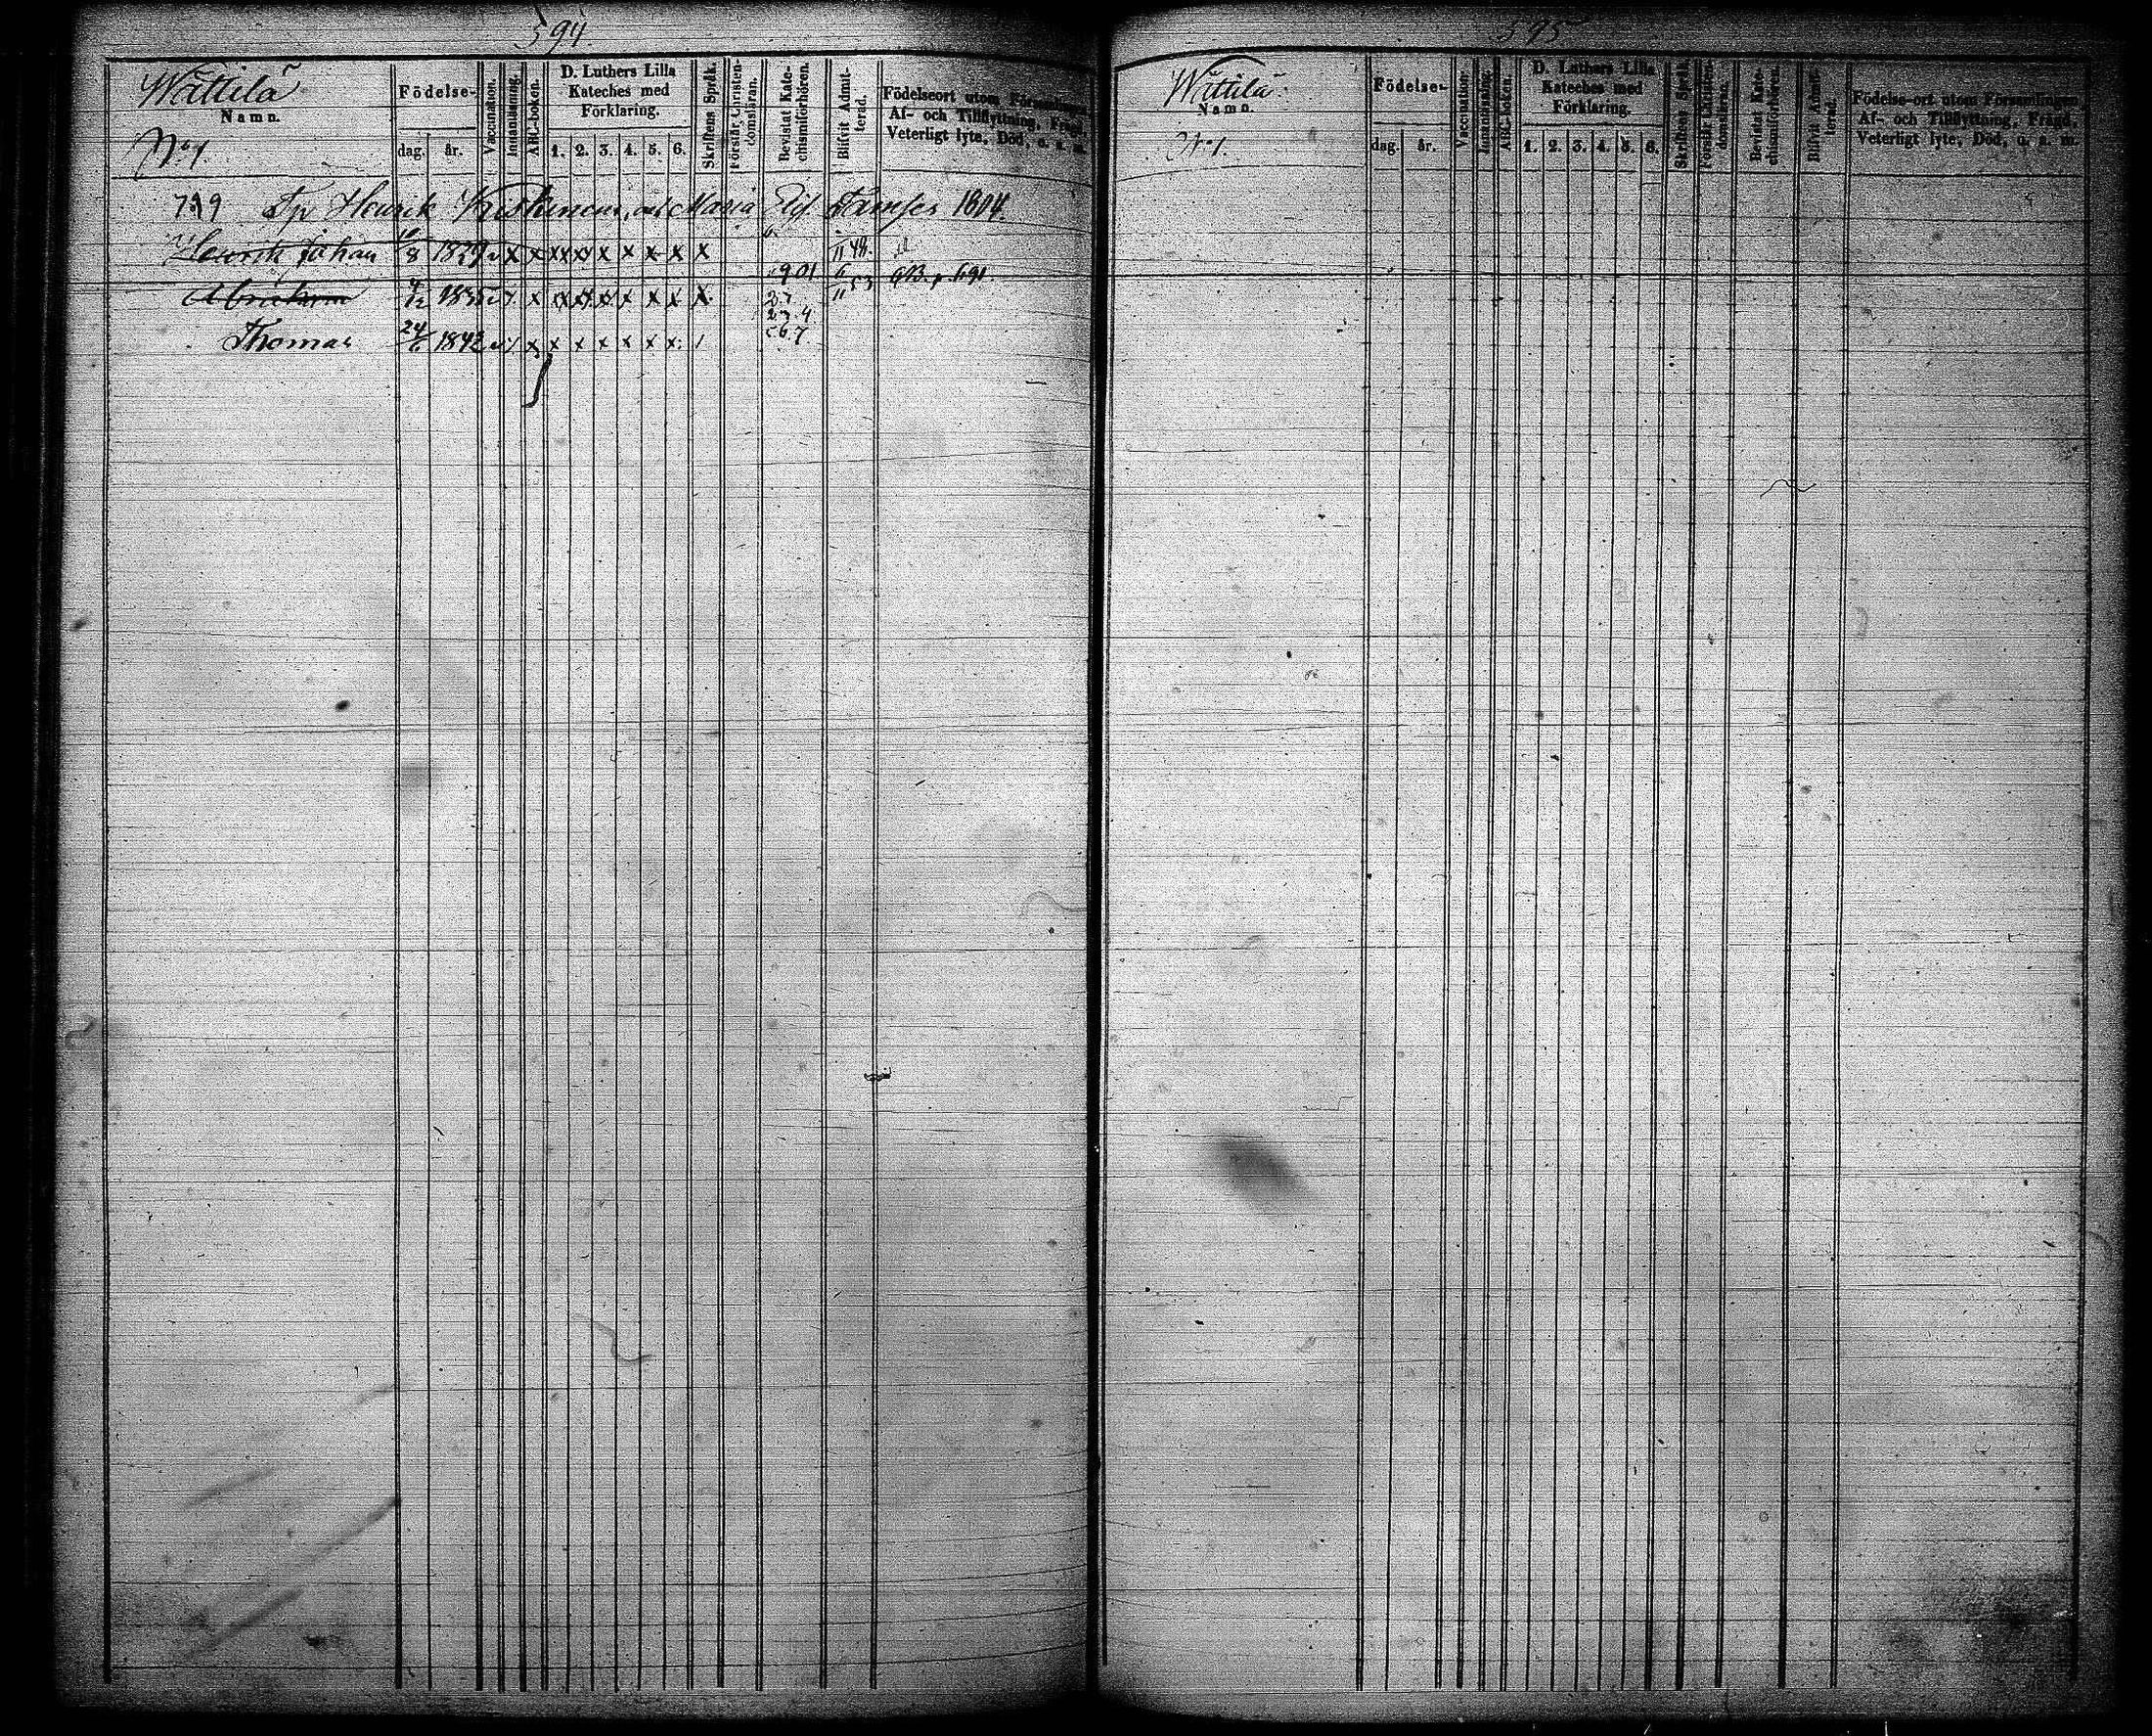 594
Wättilä
Namn.
No 1.
Födelse-
dag. år.
Vaccination.
Innanläsning.
ABC-boken.
D. Luthers Lilla
Kateches med
Förklaring.
1. 2. 3. 4. 5. 6.
Skriftens Språk.
Förstår Christen-
domsläran.
Bevistat Kate-
chismiförhören.
Blifvit Admit-
terad.
Födelseort utom Församlingen,
Af- och Tillflyttning, Frägd,
Veterligt lyte, Död, o. s. m.
Henrik Maria 1804
Henrik Johan 8 x x x x x x x x x 11 48.
Abraham 1835 x x x x x x x x 11 53
Thomas 24/6 1842 x x x x x x x
595
Wättilä
Namn.
No 1.
Födelse-
dag. år.
Vaccination.
Innanläsning.
ABC-boken.
D. Luthers Lilla
Kateches med
Förklaring.
1. 2. 3. 4. 5. 6.
Skriftens Språk.
Förstår Christen-
domsläran.
Bevistat Kate-
chismiförhören.
Blifvit Admit-
terad.
Födelse-ort utom Församlingen,
Af- och Tillflyttning, Frägd,
Veterligt lyte, Död, o. s. m.